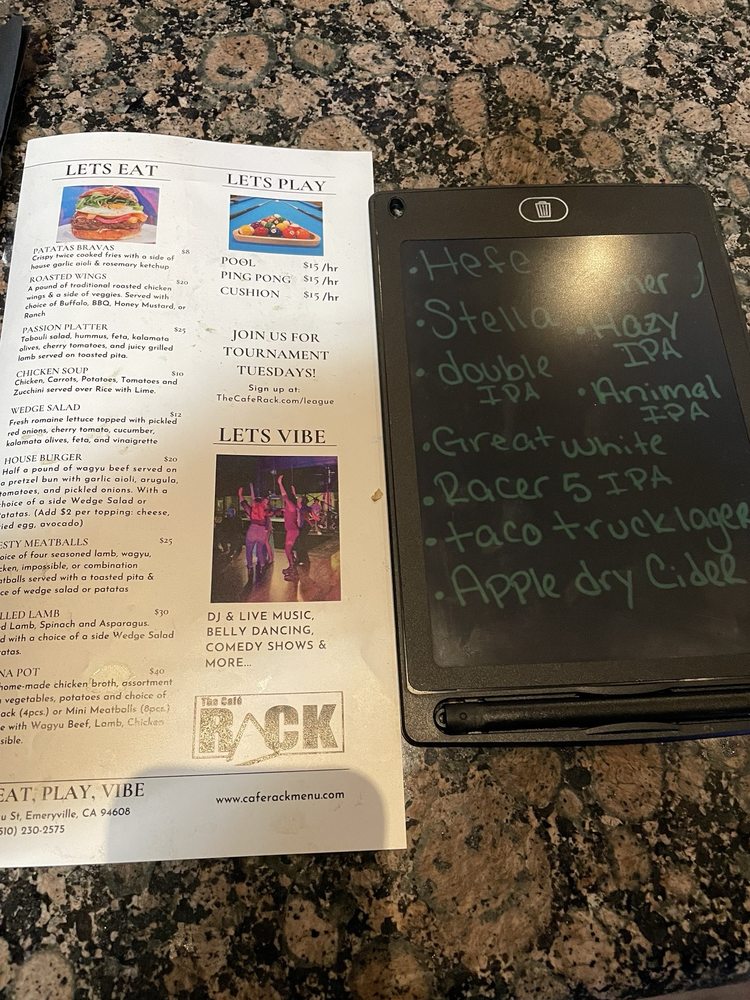 LETS EAT
PATATAS BRAVAS $8
Crispy twice cooked fries with a side of
house garlic aioli & rosemary ketchup
ROASTED WINGS $20
A pound of traditional roasted chicken
wings & a side of veggies. Served with
choice of Buffalo, BBQ, Honey Mustard, or
Ranch
PASSION PLATTER $25
Tabouli salad, hummus, feta, kalamata
olives, cherry tomatoes, and juicy grilled
lamb served on toasted pita.
CHICKEN SOUP $10
Chicken, Carrots, Potatoes, Tomatoes and
Zucchini served over Rice with Lime.
WEDGE SALAD $12
Fresh romaine lettuce topped with pickled
red onions, cherry tomato, cucumber,
kalamata olives, feta, and vinaigrette
HOUSE BURGER $20
Half a pound of wagyu beef served on
a pretzel bun with garlic aioli, arugula,
tomatoes, and pickled onions. With a
choice of a side Wedge Salad or
Patatas. (Add $2 per topping: cheese,
ried egg, avocado)
ESTY MEATBALLS $25
oice of four seasoned lamb, wagyu,
cken, impossible, or combination
atballs served with a toasted pita &
ice of wedge salad or patatas
LLED LAMB $30
d Lamb, Spinach and Asparagus.
d with a choice of a side Wedge Salad
atas.
NA POT $40
home-made chicken broth, assortment
vegetables, potatoes and choice of
ack (4pcs.) or Mini Meatballs (8pcs.)
e with Wagyu Beef, Lamb, Chicken
sible.
LETS PLAY
POOL $15 /hr
PING PONG $15 /hr
CUSHION $15 /hr
JOIN US FOR
TOURNAMENT
TUESDAYS!
Sign up at:
TheCafeRack.com/league
LETS VIBE
DJ & LIVE MUSIC,
BELLY DANCING,
COMEDY SHOWS &
MORE...
The Café
RACK
EAT, PLAY, VIBE
u St, Emeryville, CA 94608
510) 230-2575
www.caferackmenu.com
• Stella • Hazy
IPA
• double
IPA
• Animal
IPA
• Great white
• Racer 5 IPA
• taco truck lager
• Apple dry Cider